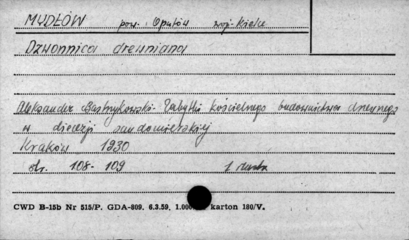 MYDŁÓW pow. Opatów woj. Kielce
Dzwonnica drewniana
Aleksander Bastrzykowski - Zabytki kościelnego budownictwa drewnianego
w diecezji sandomierskiej
Kraków 1930
str. 108-109 1
CWD B-15b Nr 515/P. GDA-809. 6.3.59. 1.000 karton 180/V.